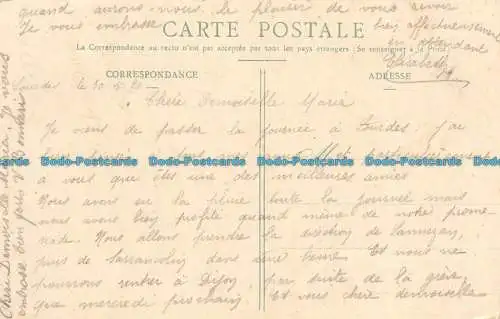 CARTE POSTALE
La Correspondance au recto n'est pas acceptée par tous les pays étrangers (Se renseigner à la Poste)
CORRESPONDANCE
ADRESSE
Lourdes le 10-5-20
Chère Demoiselle Maria
Je viens de passer la journée à Lourdes; j'ai
Dodo-Postcards Dodo-Postcards Dodo-Postcards Dodo-Postcards Dodo-Postcards
à vous que êtes une des meilleures amies
Nous avons eu la pluie toute la journée mais
nous avons bien profité quand même de notre prome-
nade. Nous allons prendre la direction de Lannezan,
puis de Sarrancolin dans une heure. Et nous ne
pourrons rentrer à Dijon, par suite de la grève,
que mercredi prochain. Et vous chère demoiselle
quand aurons-nous le plaisir de vous revoir
Je vous embrasse bien affectueusement
en attendant
Elisabeth
Chère Demoiselle Maria, Je vous
embrasse bien fort